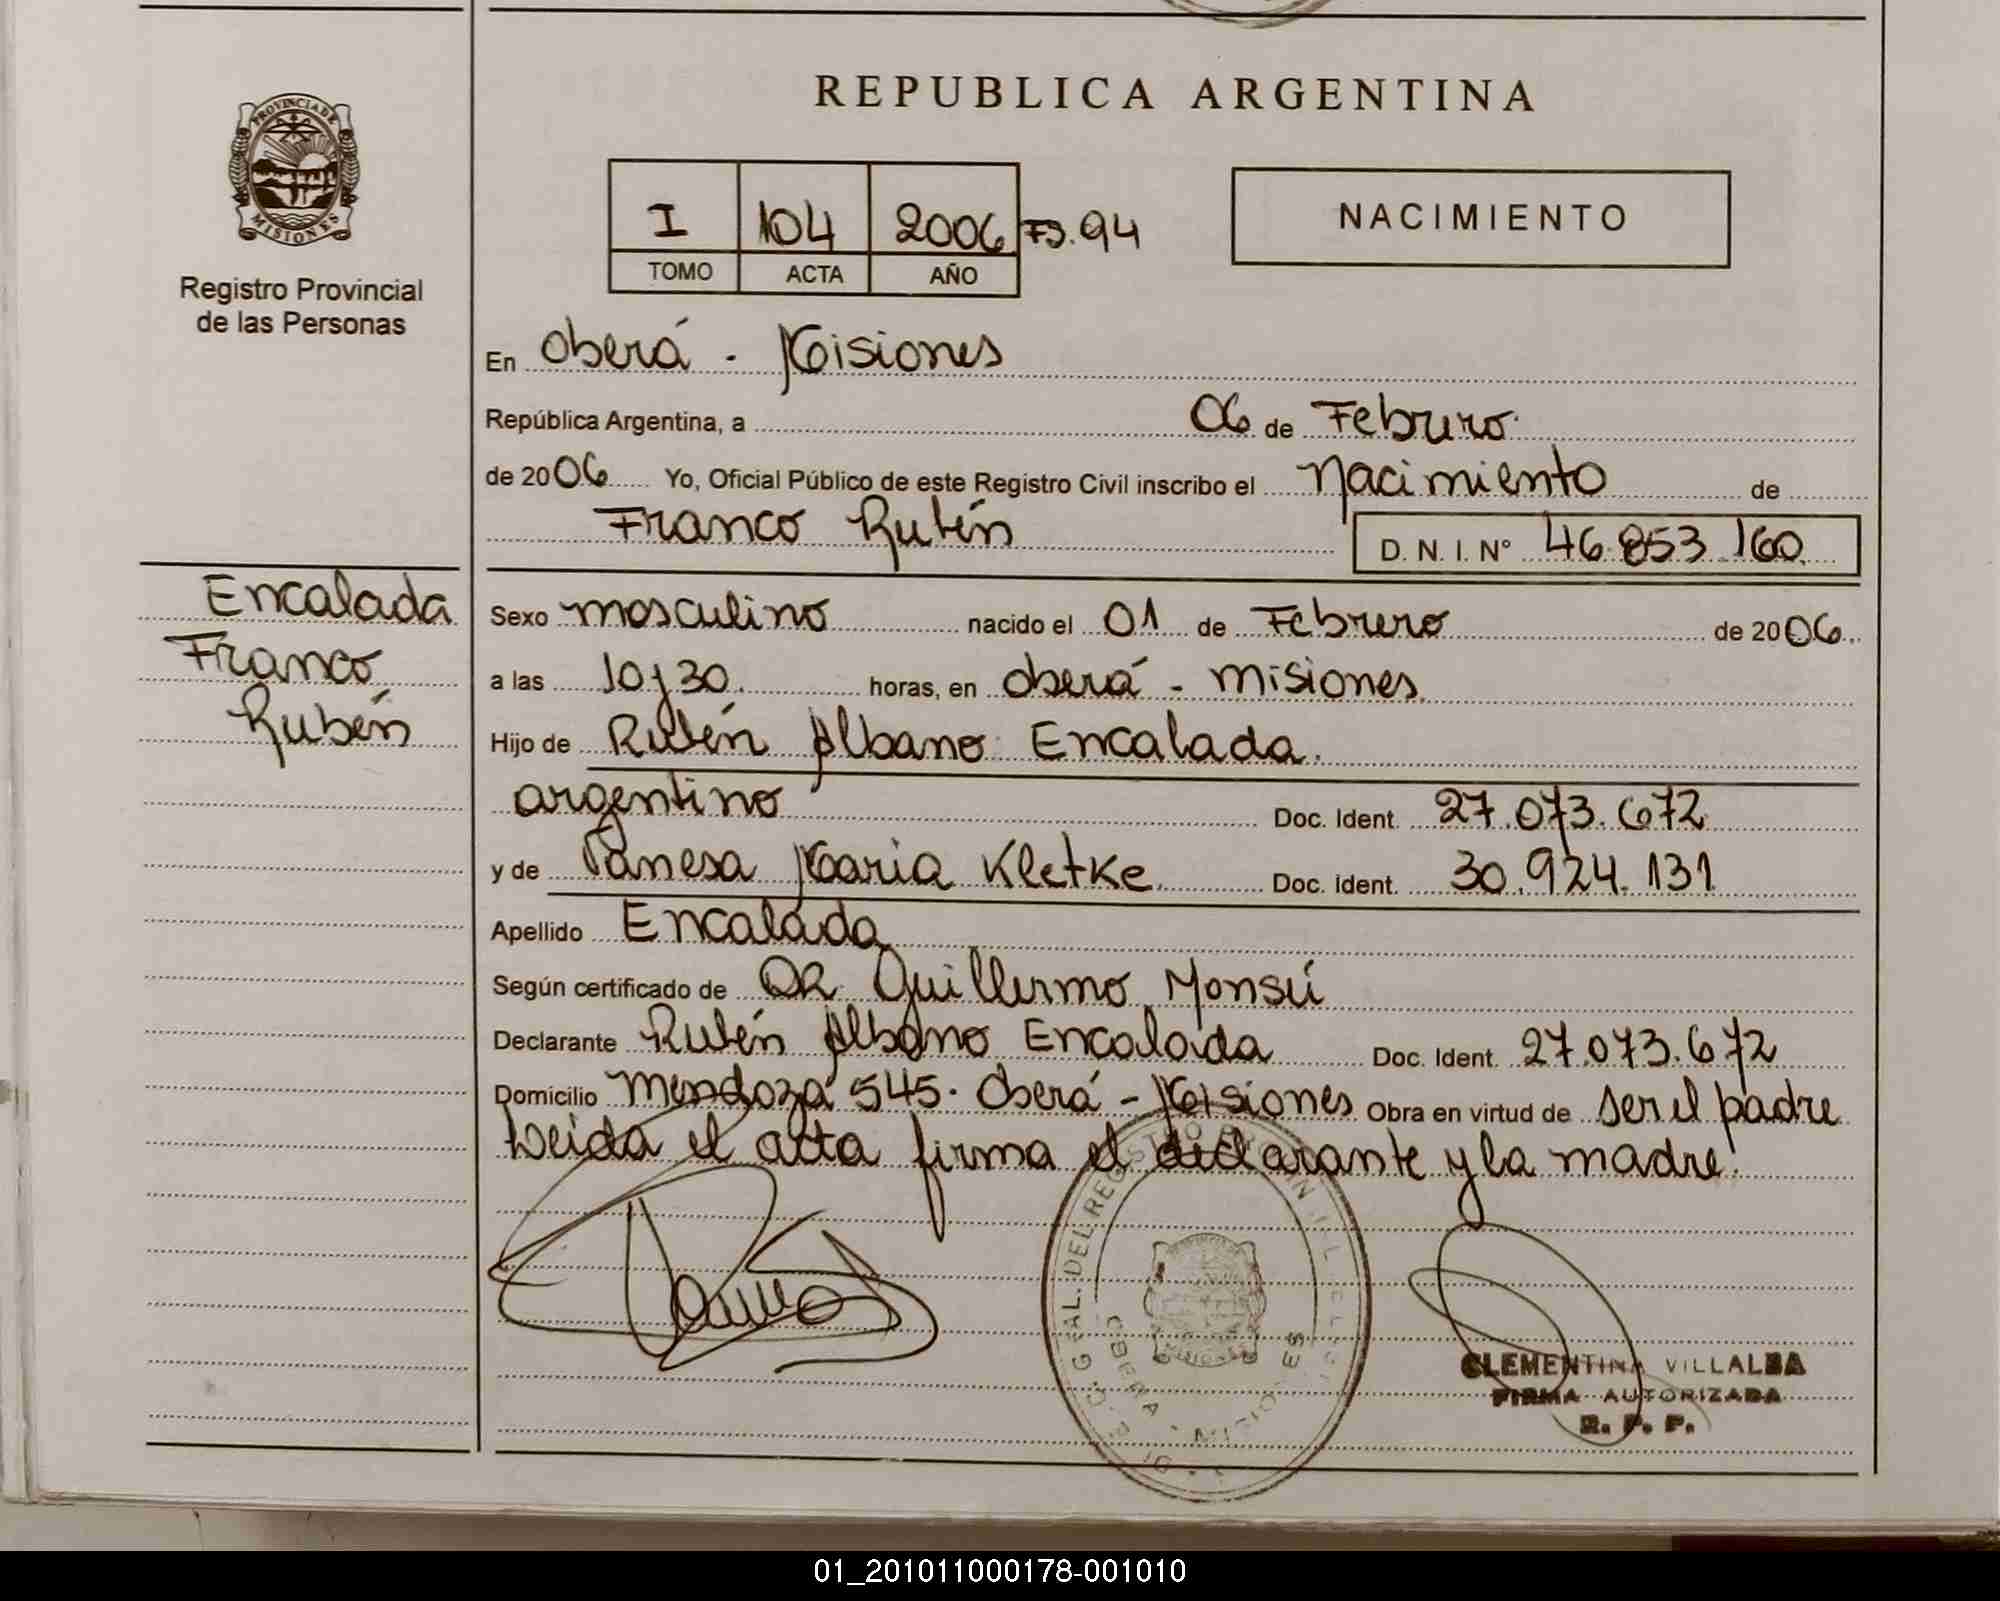 REPUBLICA ARGENTINA
PROVINCIA DE MISIONES
Registro Provincial
de las Personas
I 104 2006 Fº. 94
TOMO ACTA AÑO
NACIMIENTO
En Oberá - Misiones
República Argentina, a 06 de Febrero
de 2006 Yo, Oficial Público de este Registro Civil inscribo el Nacimiento de
Franco Rubén D. N. I. Nº 46.853.160
Encalada
Franco
Rubén
Sexo masculino nacido el 01 de Febrero de 2006
a las 10 y 30 horas, en Oberá - Misiones
Hijo de Rubén Albano Encalada
argentino Doc. Ident. 27.073.672
y de Vanesa Maria Kletke Doc. Ident. 30.924.131
Apellido Encalada
Según certificado de DR Guillermo Monsú
Declarante Rubén Albano Encalada Doc. Ident. 27.073.672
Domicilio Mendoza 545. Oberá - Misiones Obra en virtud de ser el padre
Leida el acta firma el declarante y la madre.
CLEMENTINA VILLALBA
FIRMA AUTORIZADA
R. P. P.
01_201011000178-001010